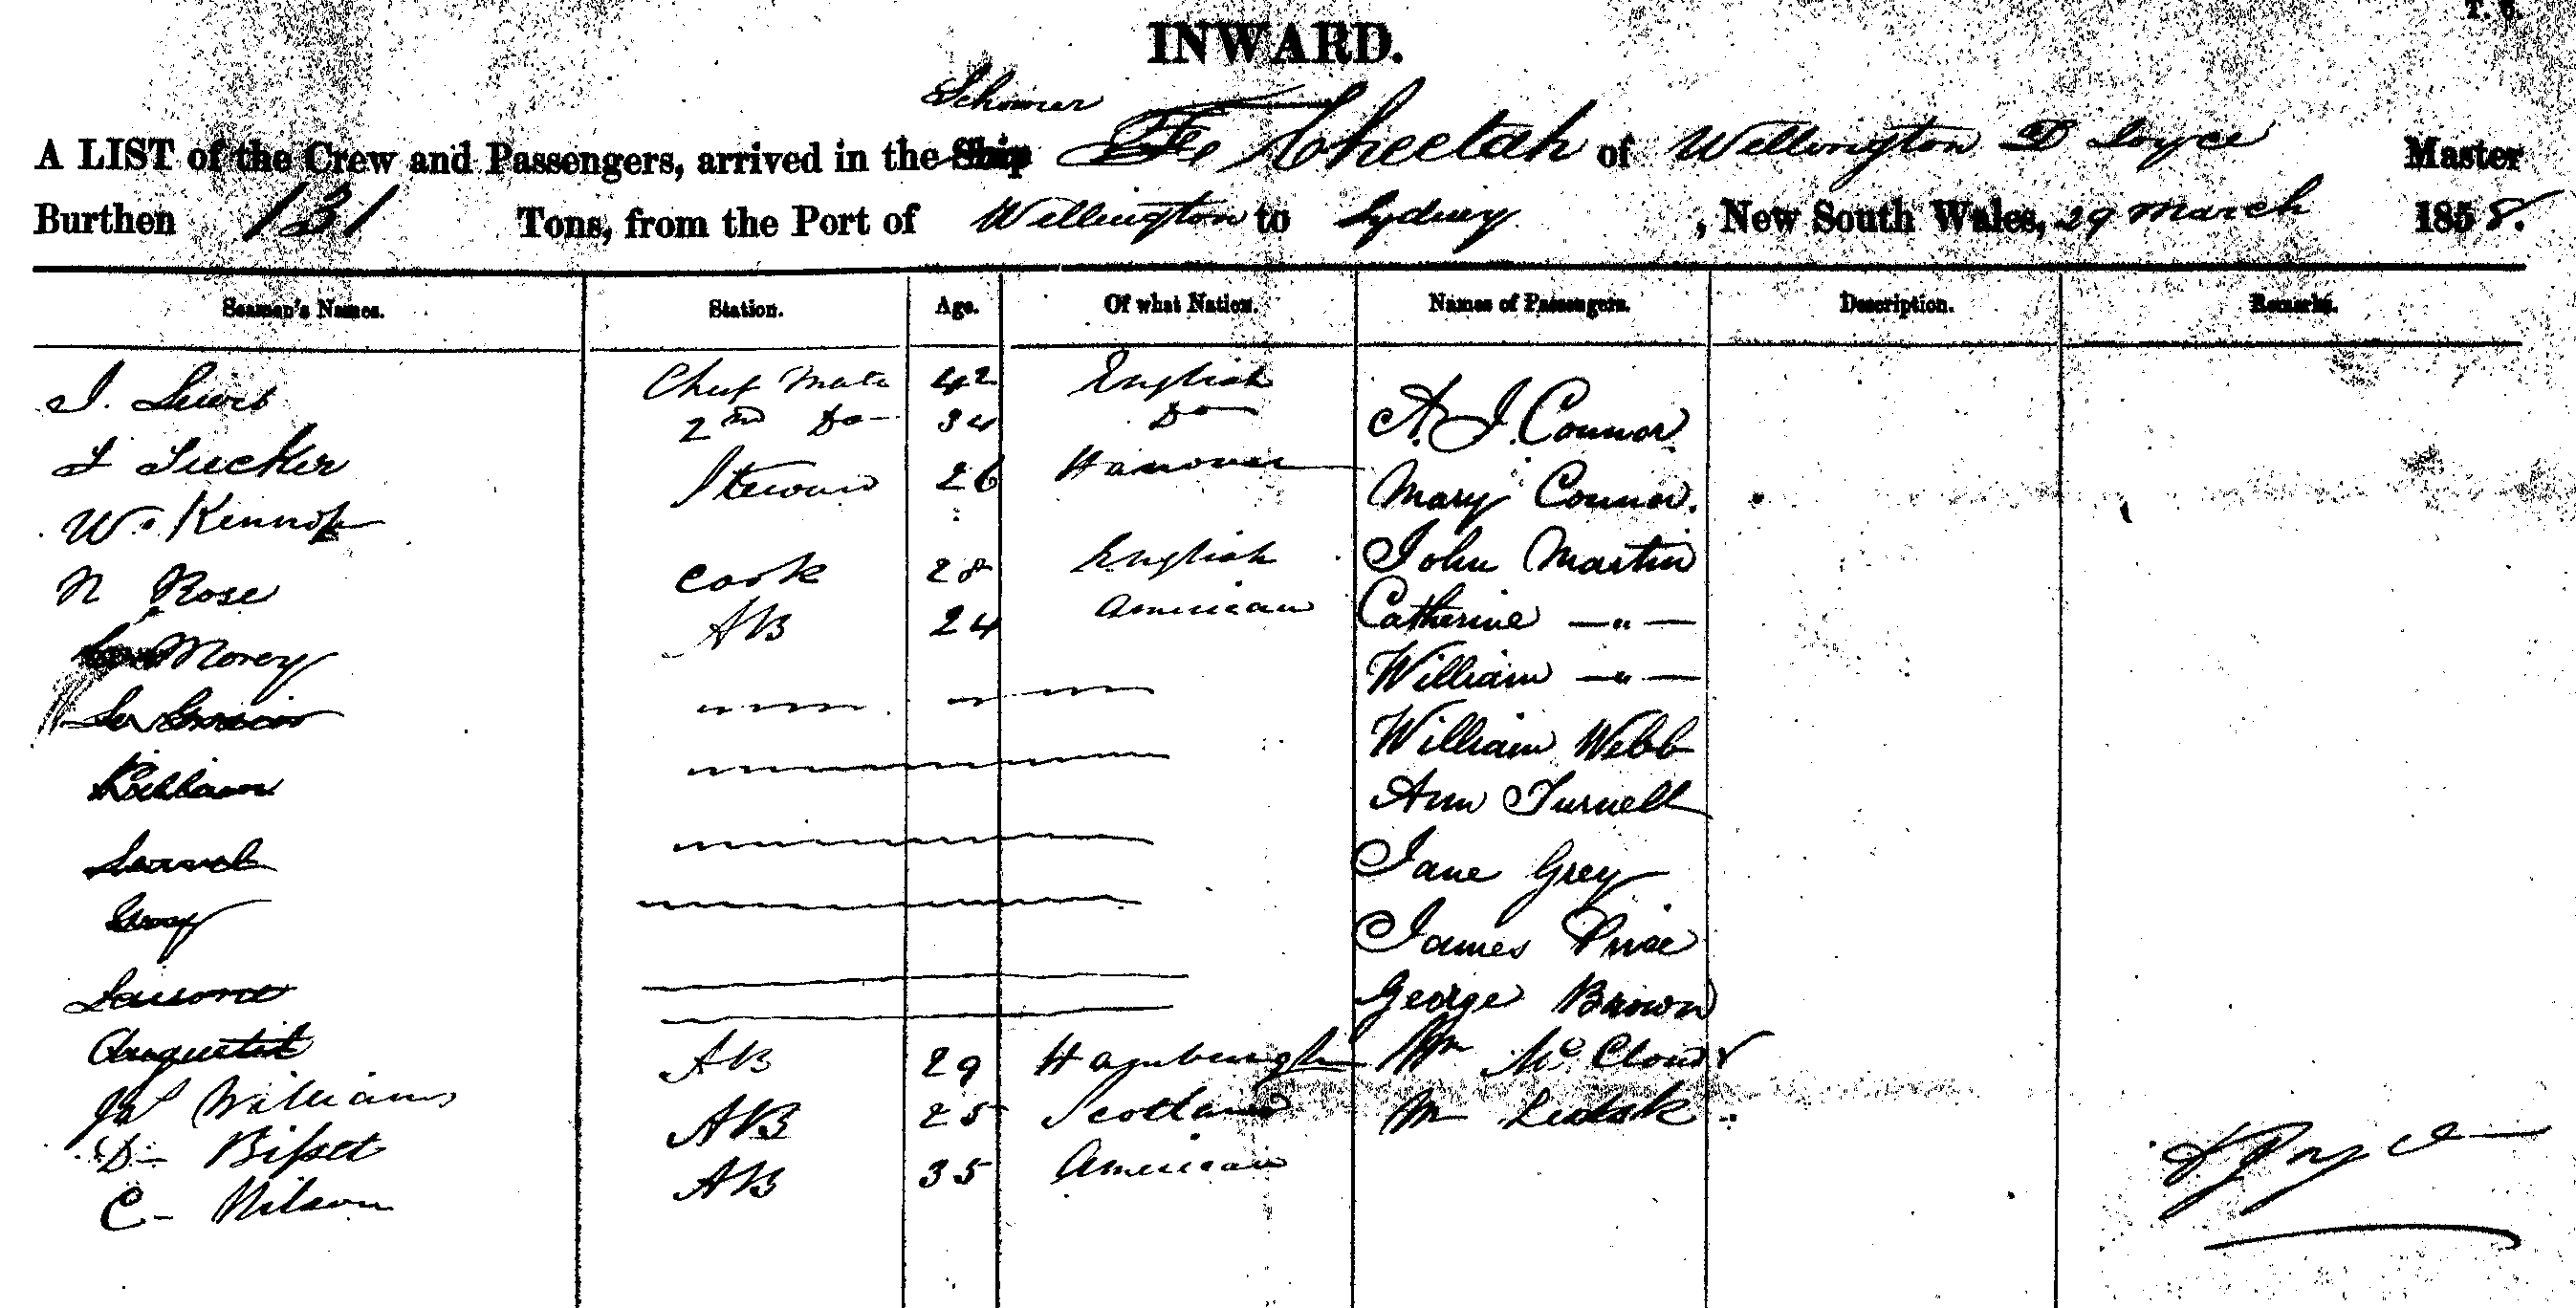 INWARD.
Schooner
A LIST of the Crew and Passengers, arrived in the Ship Cheetah of Wellington D Joyce Master
Burthen 131 Tons, from the Port of Wellington to Sydney, New South Wales, 29 March 1858.
Seaman's Names. Station. Age. Of what Nation. Names of Passengers. Description. Remarks.
J. Lewis Chief Mate 42 English A. J. Connor
Tucker 2nd Do 34 Do Mary Connor.
W. Steward 26 Hanover John Martin
N Rose Cook 28 English Catherine —"—
Morey AB 24 American William —"—
William Webb
Ann Turnell
Jane Grey
James Price
George Brown
Augustit
Williams AB 29 Hamburgh Wm McCloud
D- Bisset AB 25 Scotland
C- Nilson AB 35 American
D Joyce